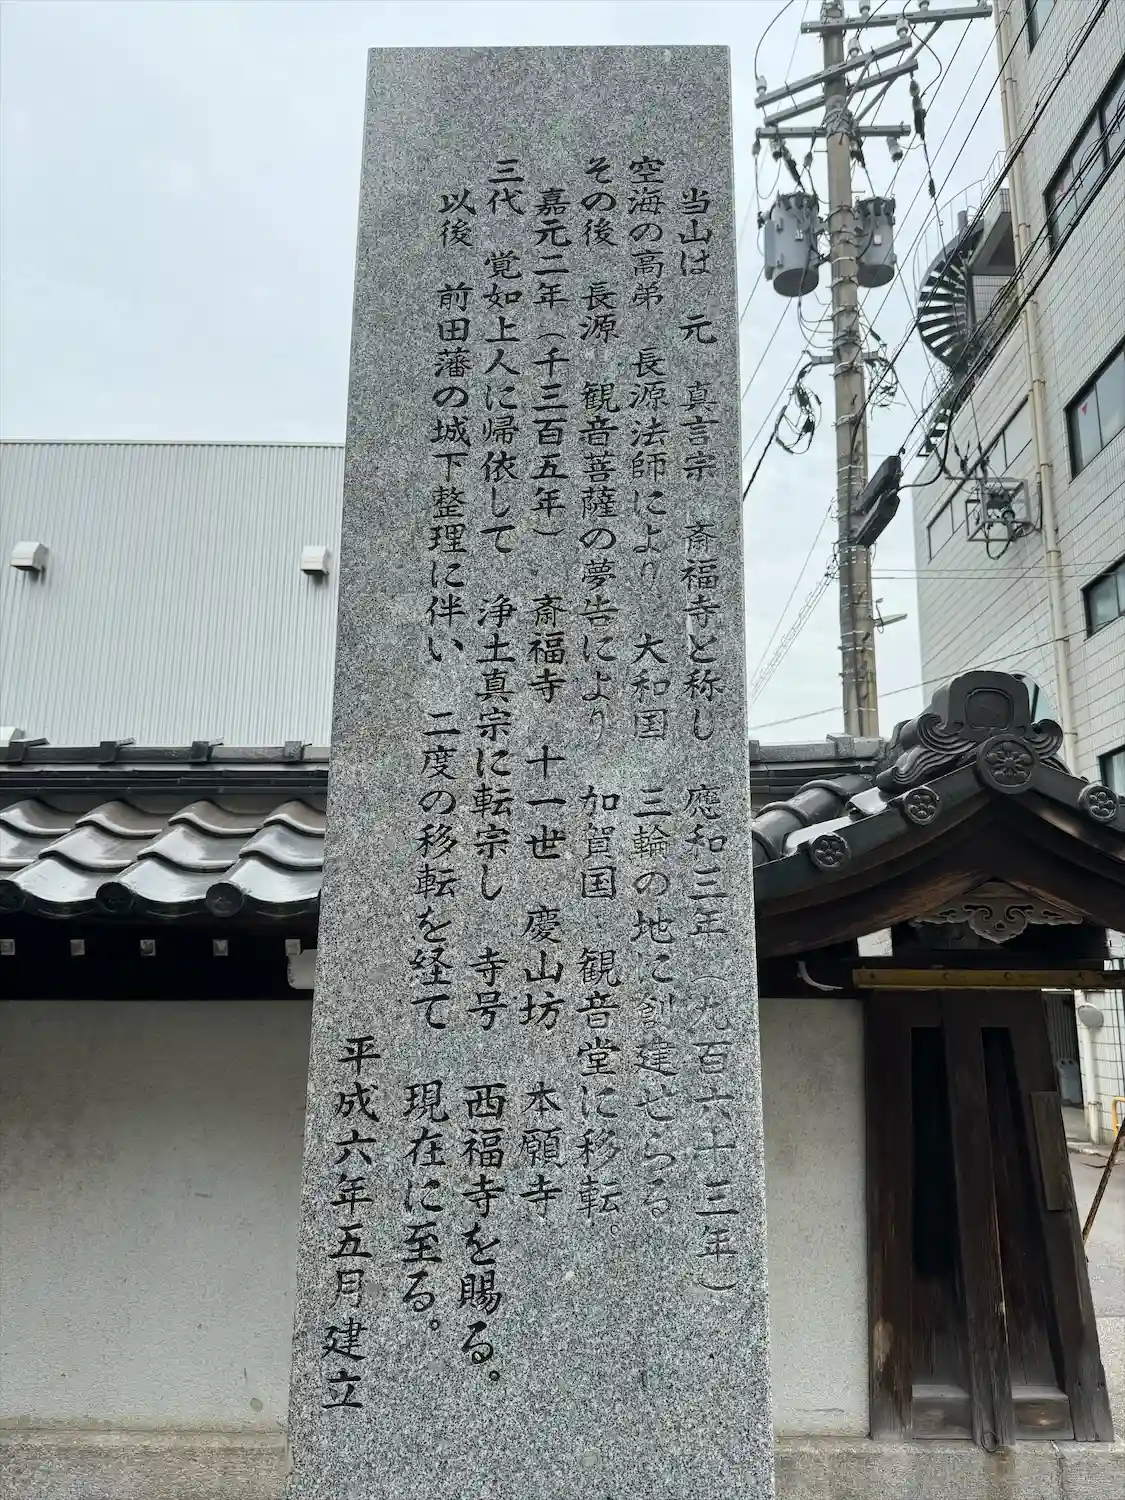 当山は　元　真言宗　斎福寺と称し　應和三年（九百六十三年）
空海の高弟　長源法師により　大和国　三輪の地に創建せらる
その後　長源　観音菩薩の夢告により　加賀国　観音堂に移転。
嘉元二年（千三百五年）　斎福寺　十一世　慶山坊　本願寺
三代　覚如上人に帰依して　浄土真宗に転宗し　寺号　西福寺を賜る。
以後　前田藩の城下整理に伴い　二度の移転を経て　現在に至る。
平成六年五月建立